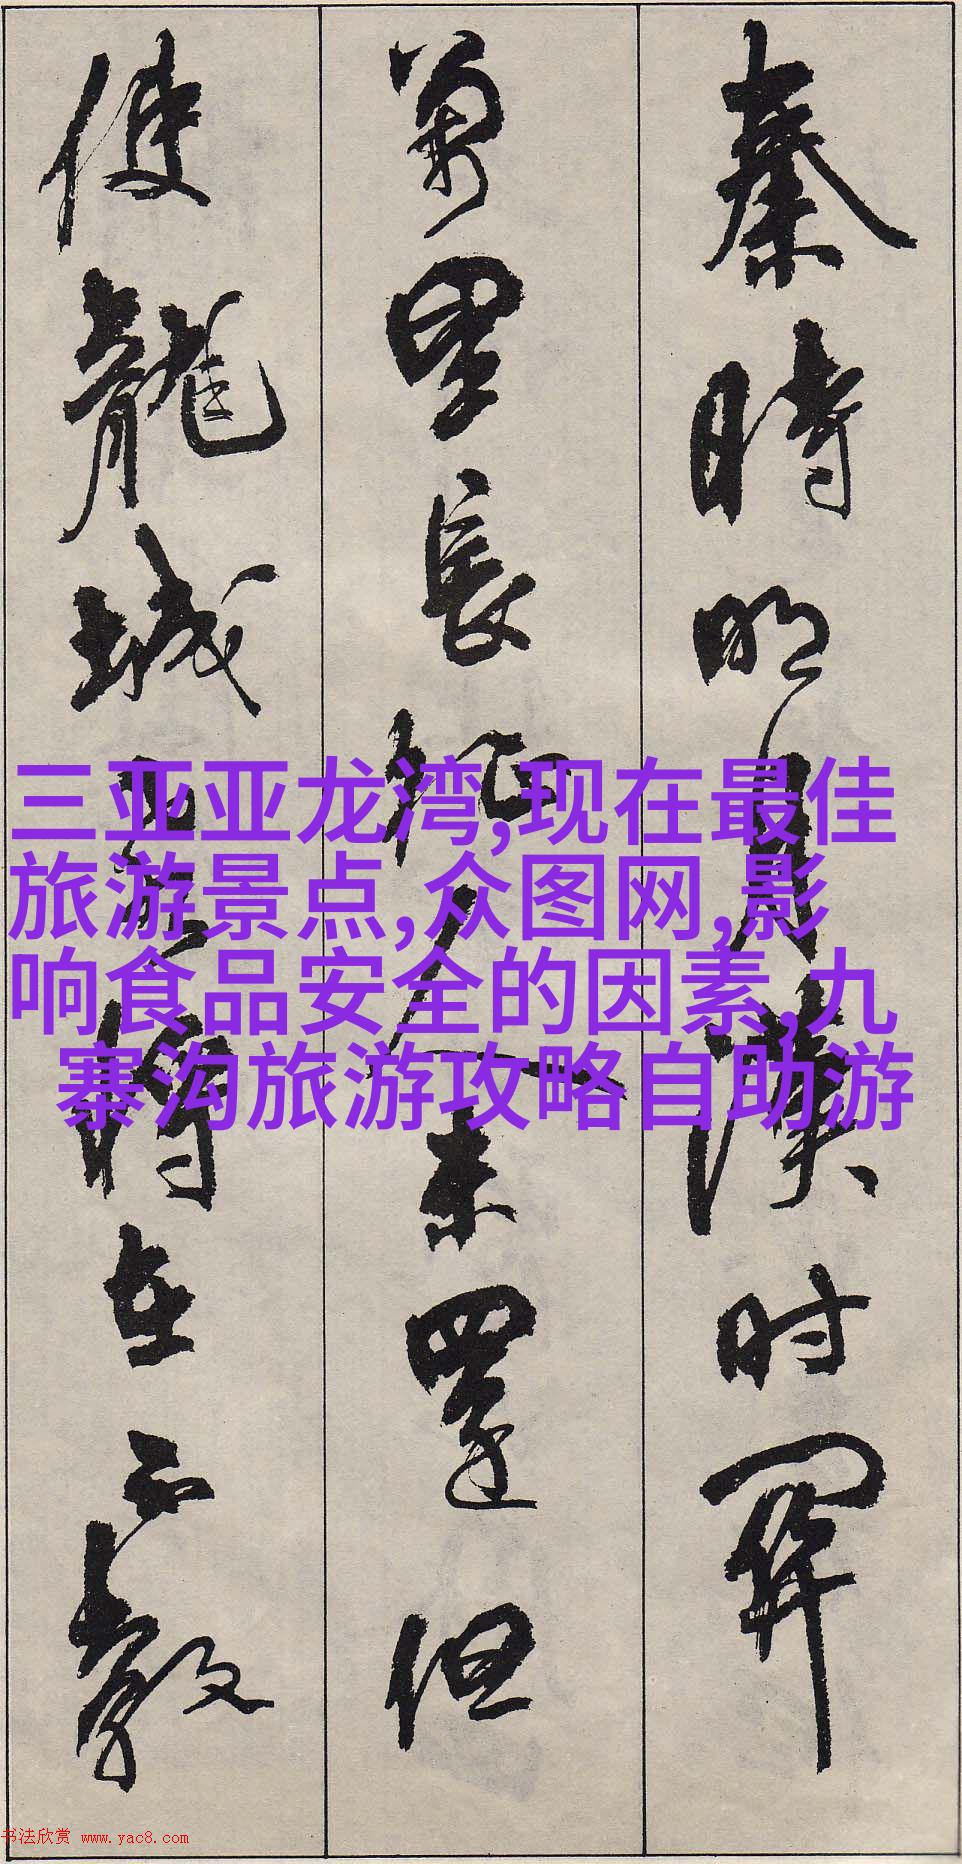 秦時明月漢时關
萬里長征人未還但
使龍城飛将在不教
三亚亚龙湾,现在最佳
旅游景点,众图网,影
响食品安全的因素,九
寨沟旅游攻略自助游
书法欣赏 www.yac8.com